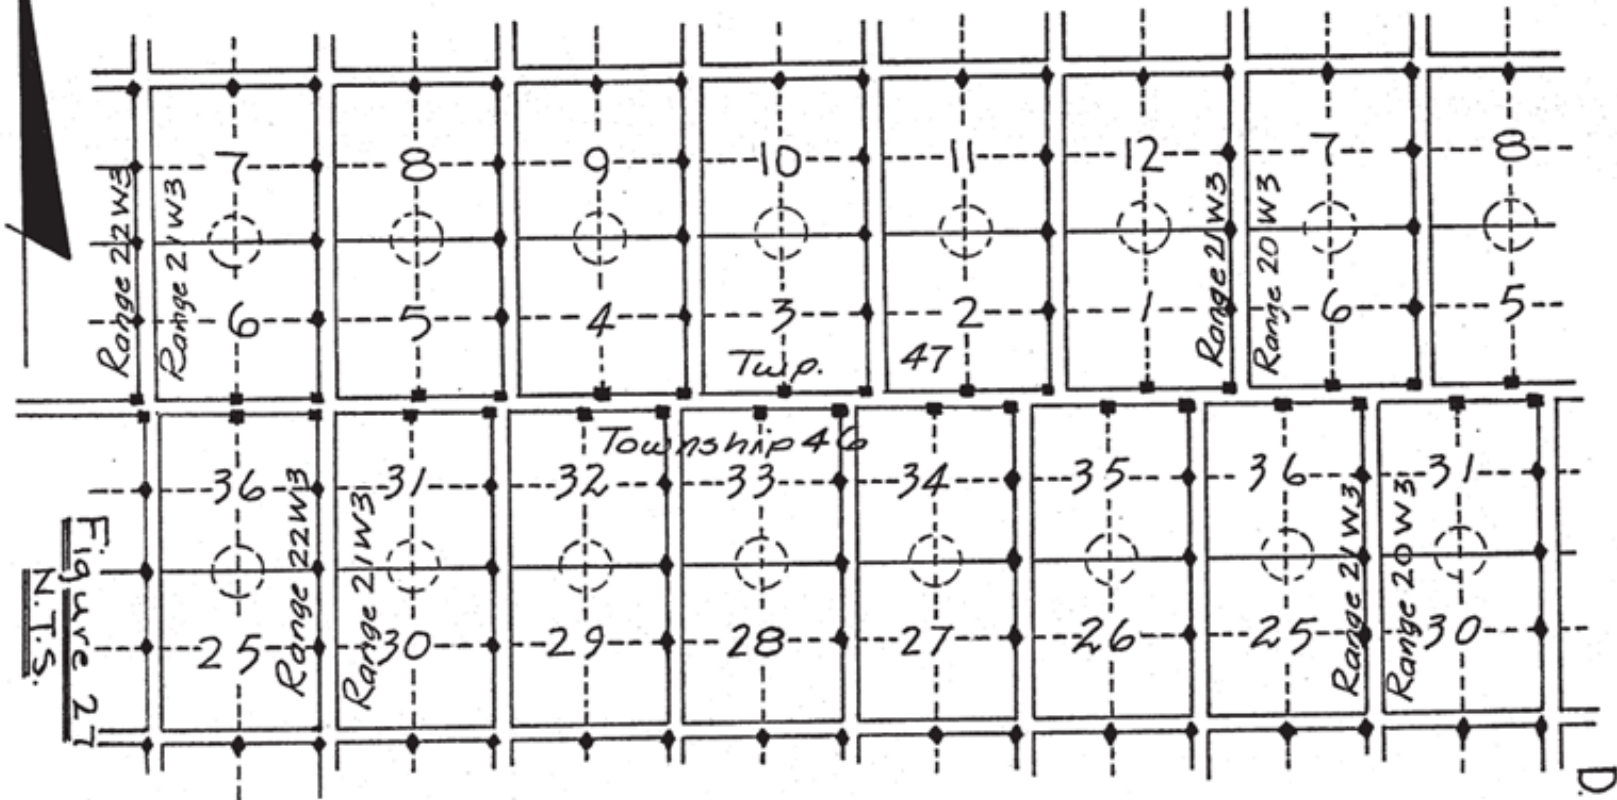 7 8 9 10 11 12 7 8
Range 22 W3
Range 21 W3
Range 21 W3
Range 20 W3
6 5 4 3 2 1 6 5
Twp. 47
Township 46
36 31 32 33 34 35 36 31
Range 22 W3
Range 21 W3
Range 21 W3
Range 20 W3
25 30 29 28 27 26 25 30
Figure 27
N.T.S.
D.